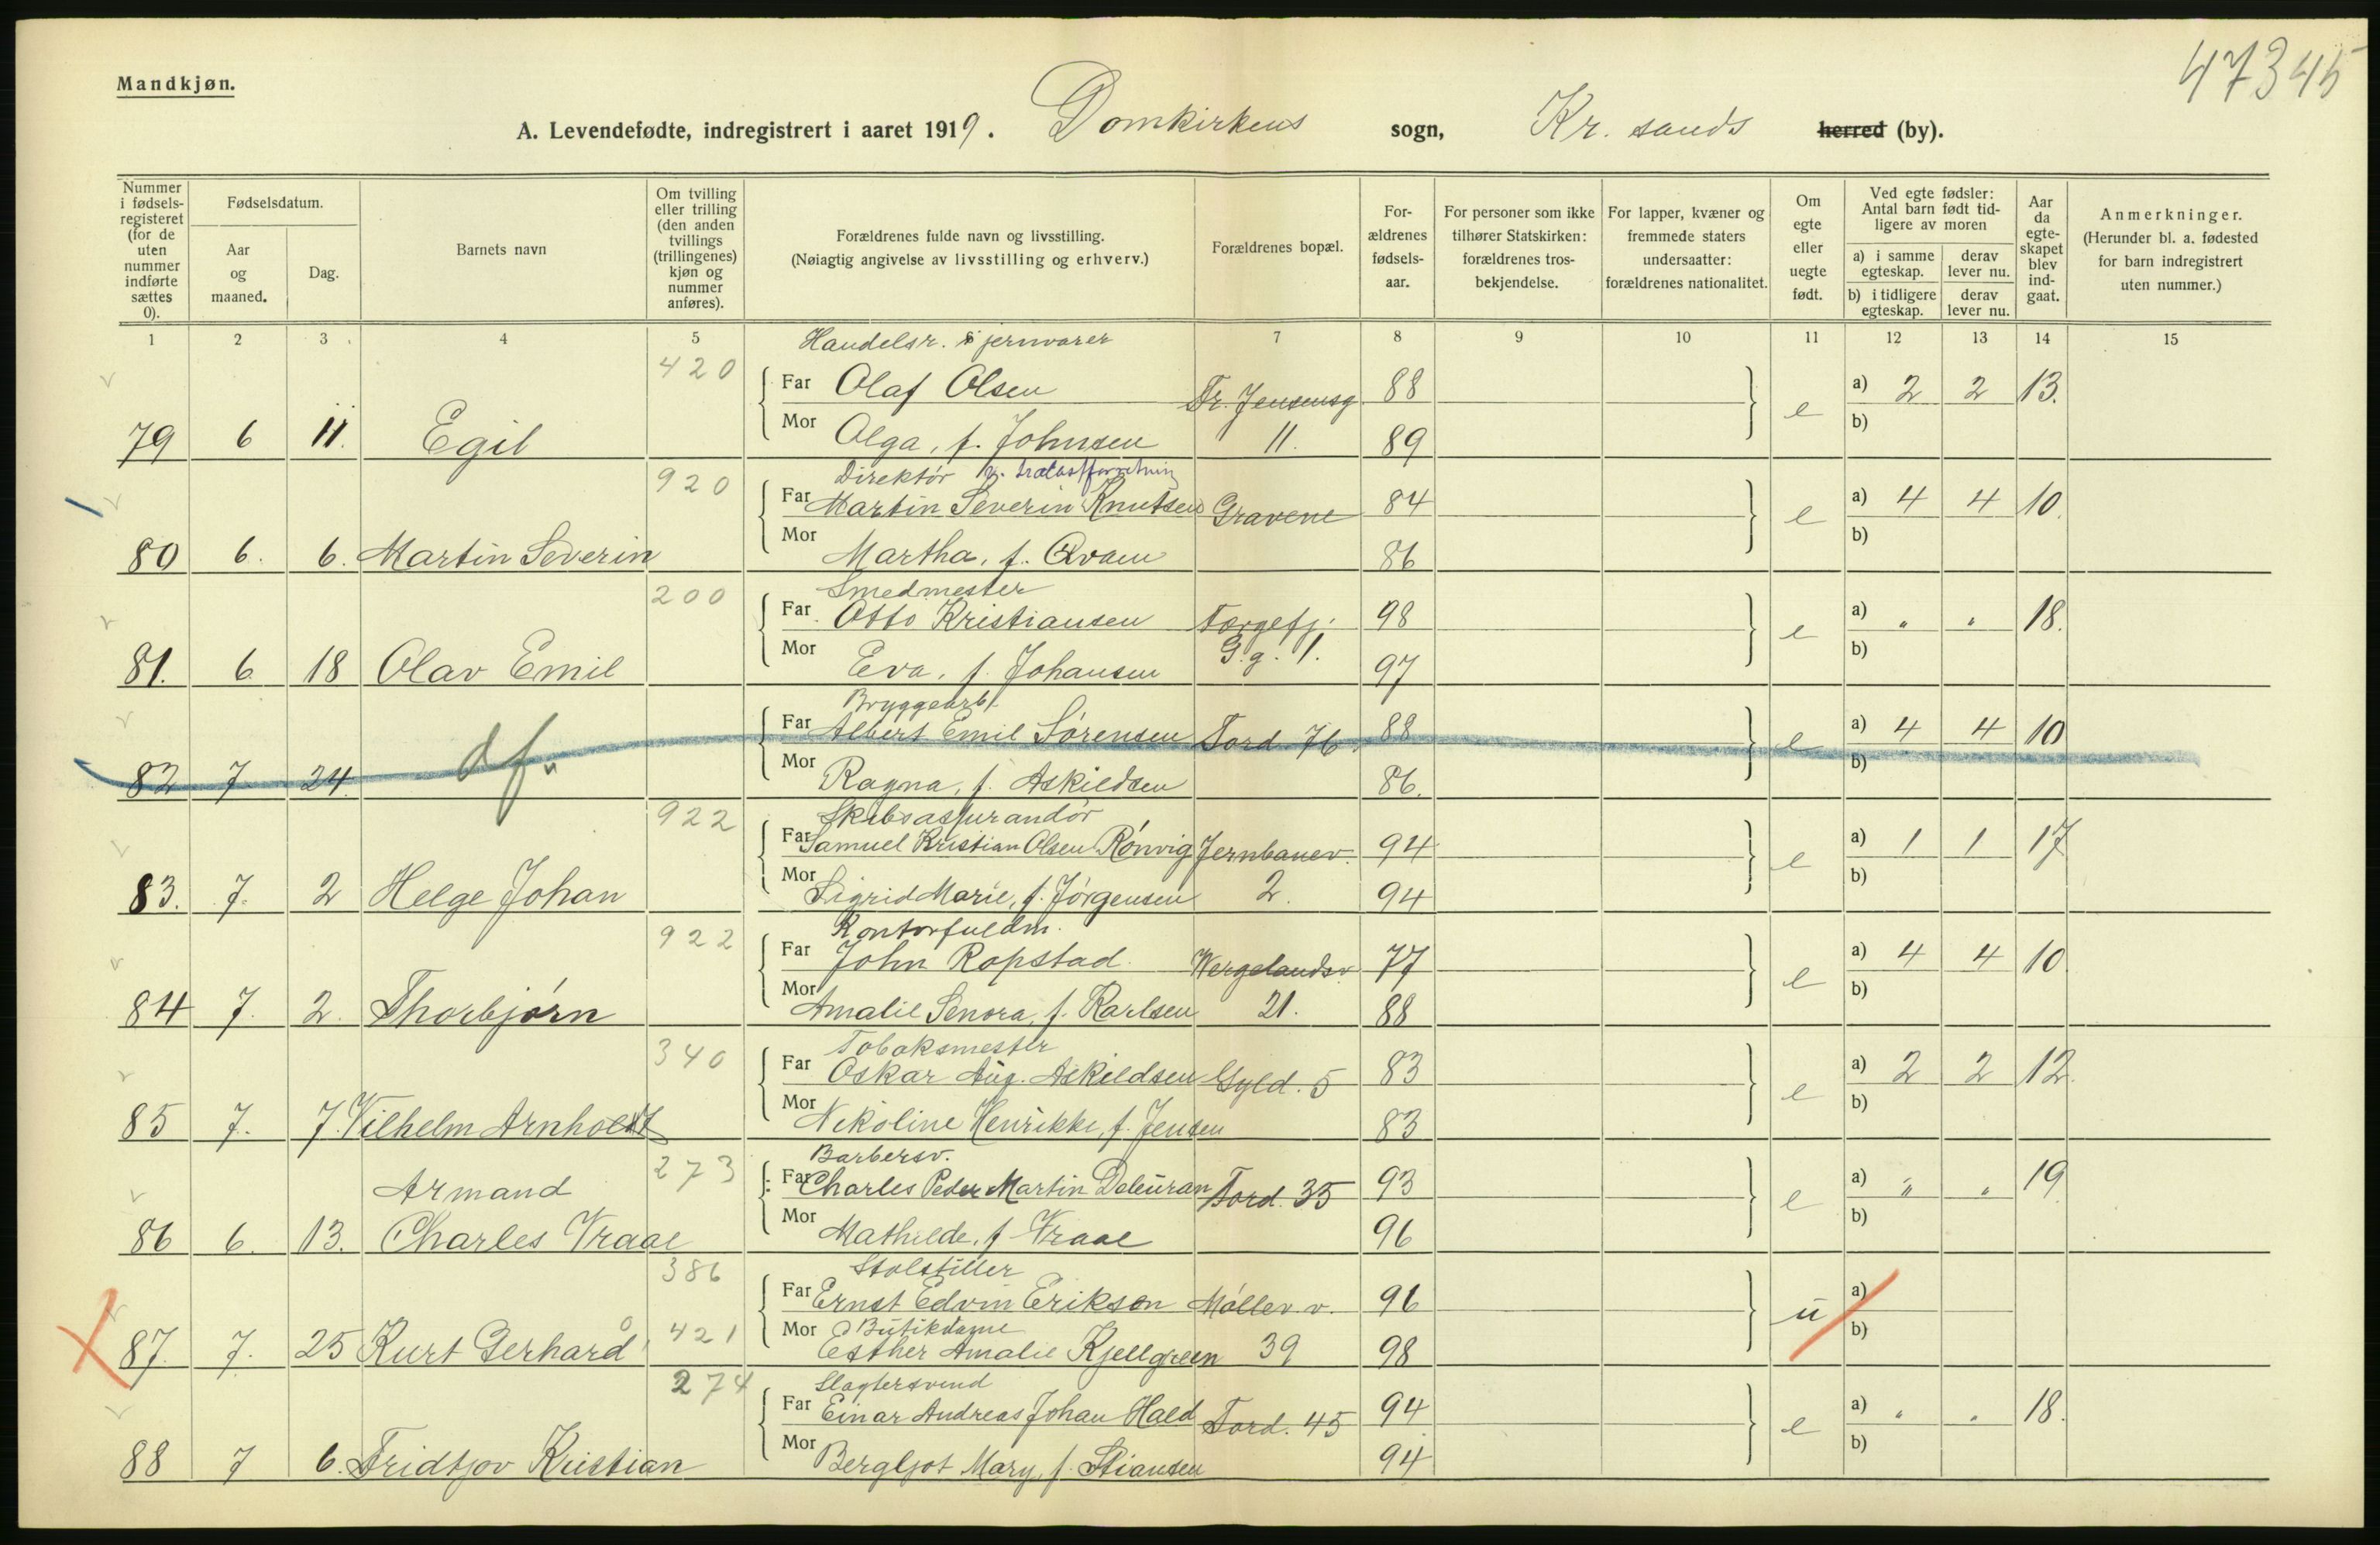 47345
Mandkjøn.
A. Levendefødte, indregistrert i aaret 1919. Domkirkens sogn, Kr. sands herred (by).
Nummer i fødselsregisteret (for de uten nummer indførte sættes 0).
Fødselsdatum.
Aar og maaned.
Dag.
Barnets navn
Om tvilling eller trilling (den anden tvillings (trillingenes) kjøn og nummer anføres).
Forældrenes fulde navn og livsstilling.
(Nøiagtig angivelse av livsstilling og erhverv.)
Forældrenes bopæl.
Forældrenes fødselsaar.
For personer som ikke tilhører Statskirken: forældrenes trosbekjendelse.
For lapper, kvæner og fremmede staters undersaatter: forældrenes nationalitet.
Om egte eller uegte født.
Ved egte fødsler: Antal barn født tidligere av moren
a) i samme egteskap. derav lever nu.
b) i tidligere egteskap. derav lever nu.
Aar da egteskapet blev indgaat.
Anmerkninger.
(Herunder bl. a. fødested for barn indregistrert uten nummer.)
1 2 3 4 5 7 8 9 10 11 12 13 14 15
Handelsr. jernvarer
420
Far Olaf Olsen Fr. Jensensg 88 a) 2 2 13.
79 6 11. Egil Mor Olga, f. Johnsen 11. 89 e b)
Direktør v. trælastforretning
920
Far Martin Severin Knutsen Gravene 84 a) 4 4 10.
80 6. 6. Martin Severin Mor Martha, f. Qvam 86 e b)
Smedmester
200
Far Otto Kristiansen Torgefj. 98 a) " " 18.
81. 6 18 Olav Emil Mor Eva, f. Johansen G.g. 1. 97 e b)
Bryggearb.
Far Albert Emil Sørensen Tord 76 88 a) 4 4 10
82 7 24. df. Mor Ragna, f. Askildsen 86. e b)
Skibsassurandør
922
Far Samuel Kristian Olsen Rønvig Jernbanev. 94 a) 1 1 17
83. 7. 2 Helge Johan Mor Sigrid Marie, f. Jørgensen 2. 94 e b)
Kontorfuldm.
922
Far John Ropstad Wergelandsv. 77 a) 4 4 10
84 7. 2. Thorbjørn Mor Amalie Senora, f. Karlsen 21. 88 e b)
Tobaksmester
340
Far Oskar Aug. Askildsen Gyld. 5 83 a) 2 2 12.
85 7. 7. Vilhelm Arnholdt Mor Nikoline Henrikke, f. Jensen 83 e b)
Barbersv.
273
Armand Far Charles Peder Martin Deleuran Tord. 35 93 a) " " 19
86 6. 13. Charles Vraal Mor Mathilde, f Vraal 96 e b)
Stolstiller
386
Far Ernst Edvin Erikson Møllev. v. 96 a)
Butikdame
87. 7. 25 Kurt Gerhard 421 Mor Esther Amalie Kjellgreen 39 98 u b)
Slagtersvend
274
Far Einar Andreas Johan Hald Tord. 45 94 a) " " 18.
88 7 6. Fridtjov Kristian Mor Bergljot Mary, f. Stiansen 94 e b)